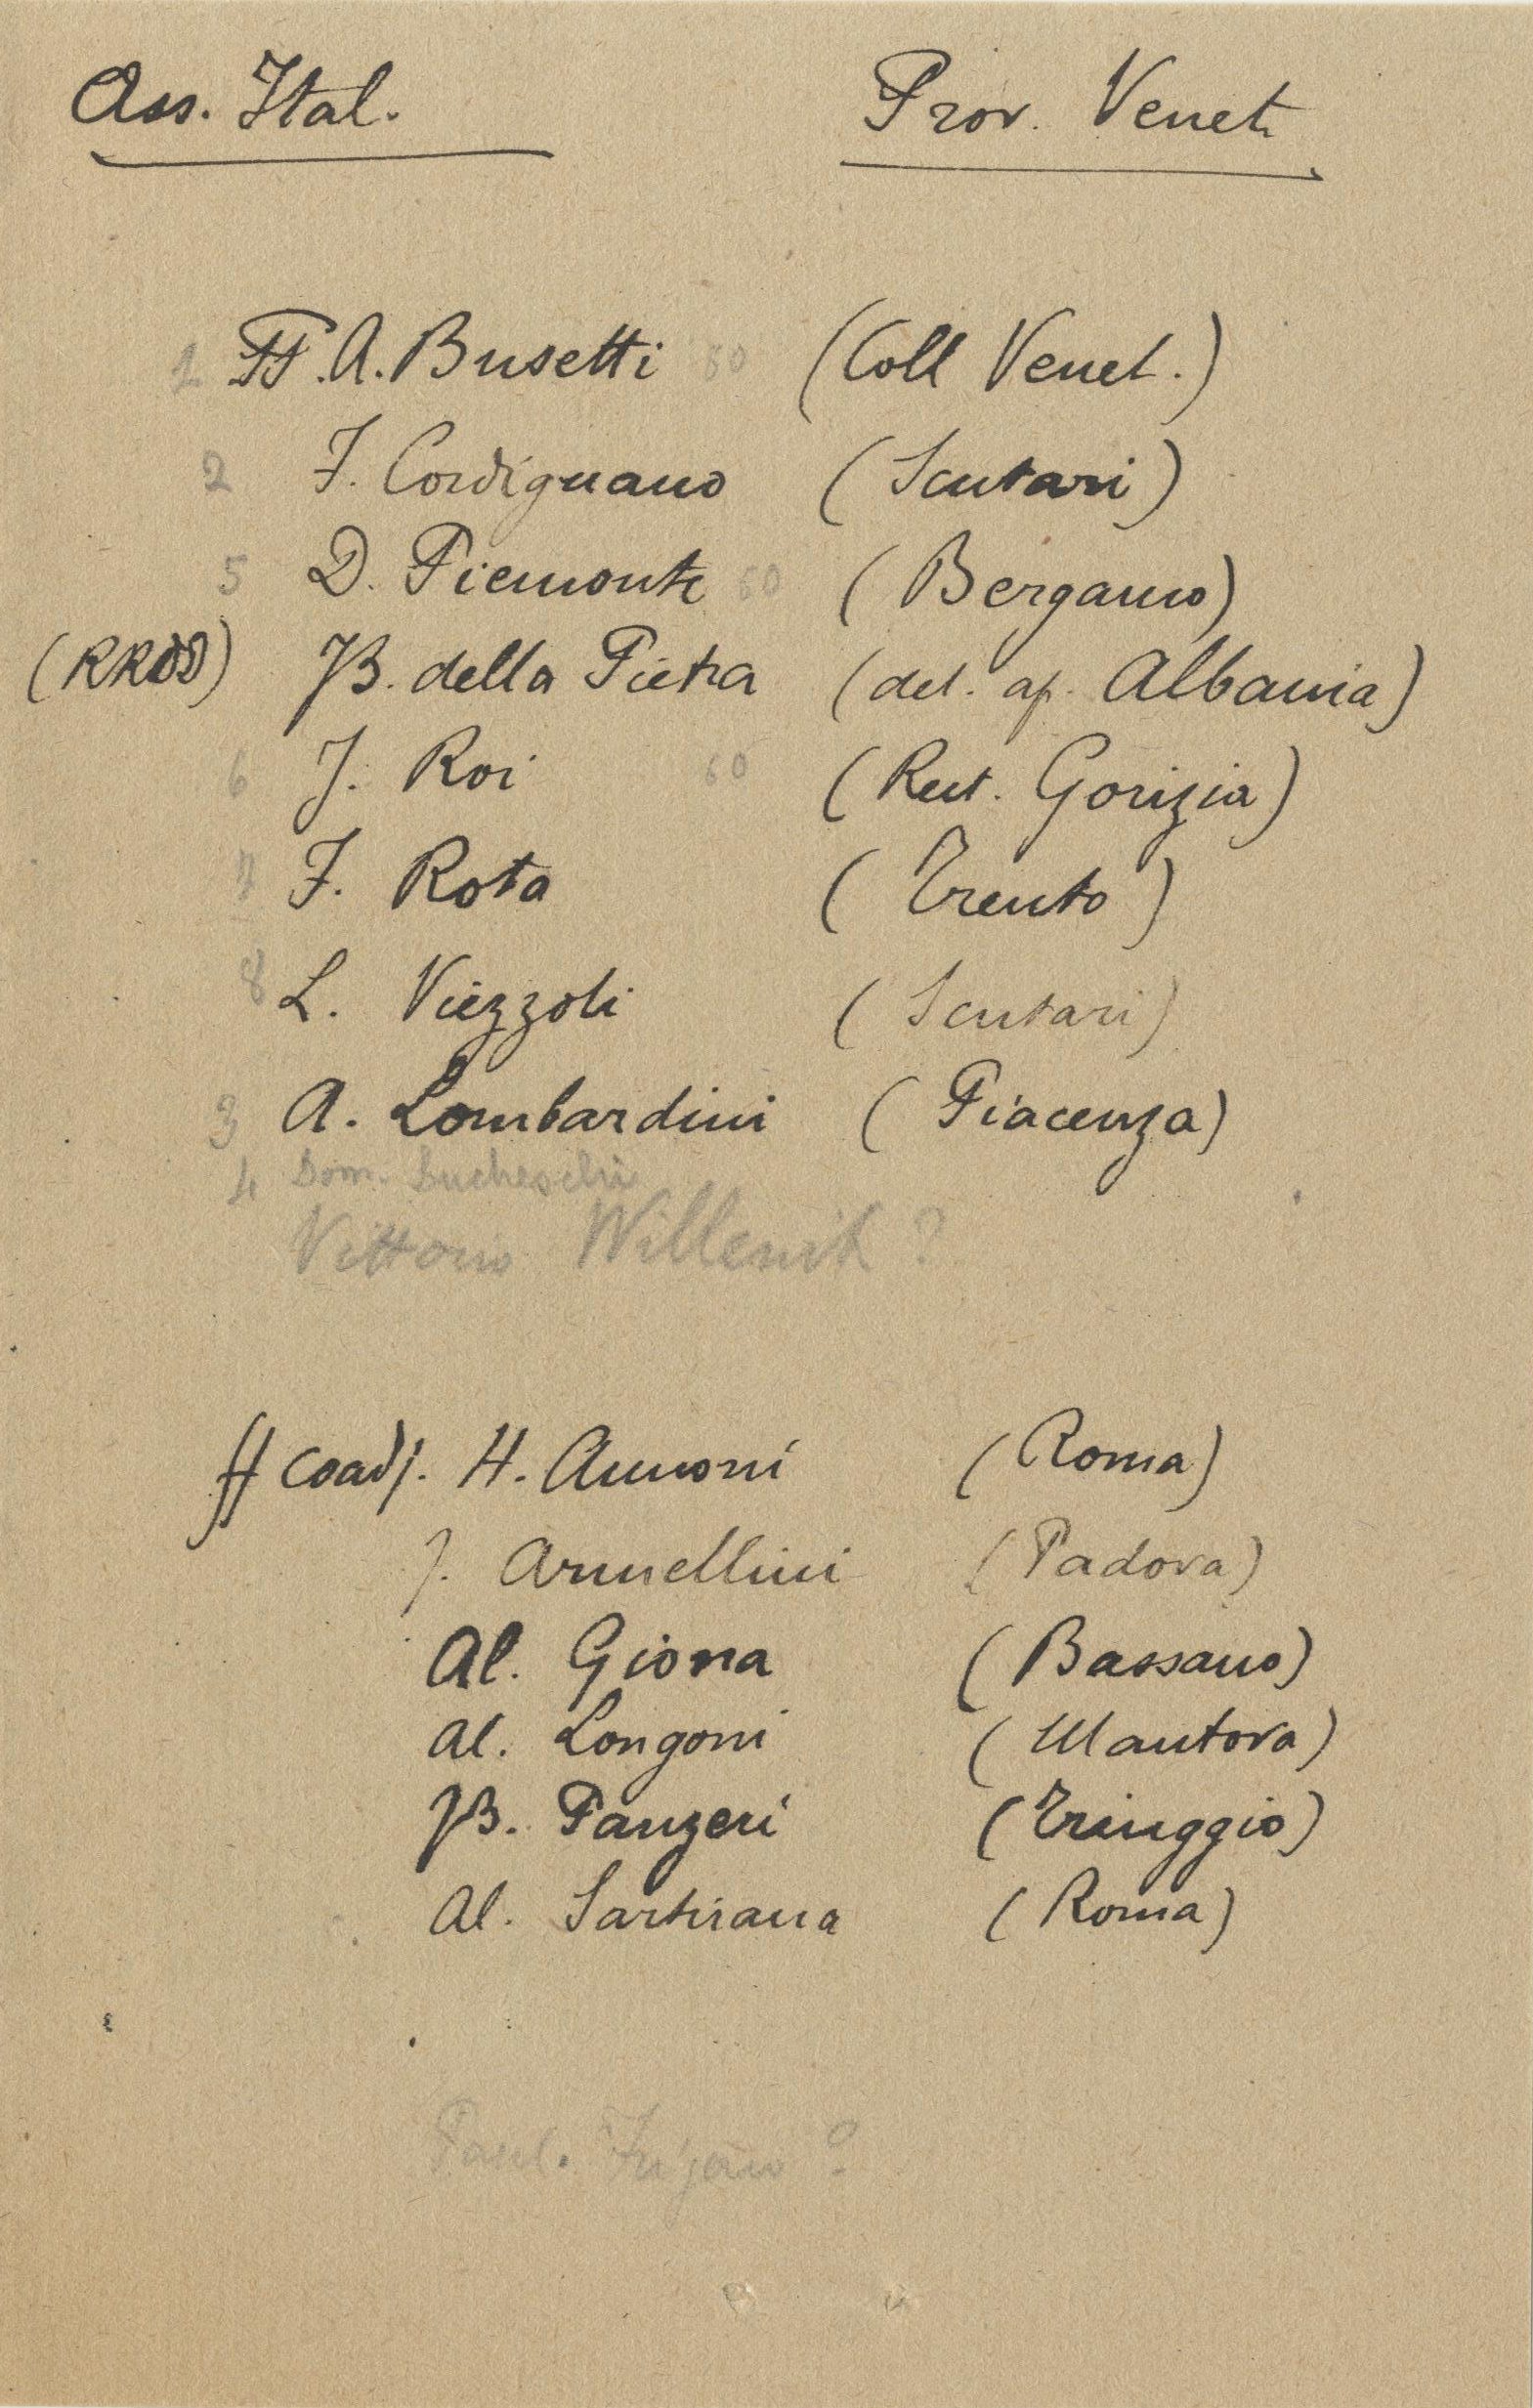 Ass. Ital. Prov. Venet.
1 PP. A. Busetti 60 (Coll Venet.)
2 F. Cordignano (Scutari)
5 D. Piemonte 60 (Bergamo)
JB. della Pietra (del. ap. Albania)
6 J. Roi 60 (Rect. Gorizia)
7 F. Rota (Trento)
8 L. Viezzoli (Scutari)
3 A. Lombardini (Piacenza)
4 Dom.
Vittorio ?
ff coadj. H. Annoni (Roma)
J. Armellini (Padova)
Al. Giona (Bassano)
Al. Longoni (Mantova)
JB. Panzeri (Triuggio)
Al. Sartirana (Roma)
?